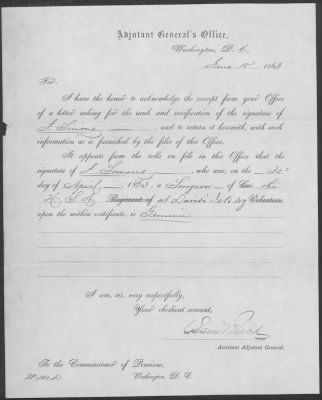 Adjutant General's Office,
Washington, D. C.
June 18th 1868
Sir:
I have the honor to acknowledge the receipt from your Office
of a letter asking for the rank and verification of the signature of
S. Simons, and to return it herewith, with such
information as is furnished by the files of this Office.
It appears from the rolls on file in this Office that the
signature of S. Simons, who was, on the 20"
day of April 1863, a Surgeon of the
U S A Regiment of at David's Volunteers,
upon the within certificate, is Genuine
I am, sir, very respectfully,
Your obedient servant,
Saml Breck
Assistant Adjutant General.
To the Commissioner of Pensions,
Washington, D. C.